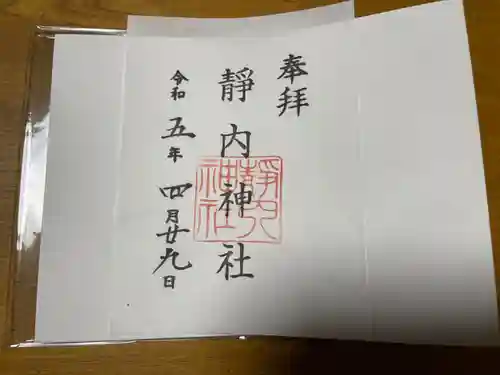 奉拝
靜内神社
令和五年四月廿九日
靜内
神社